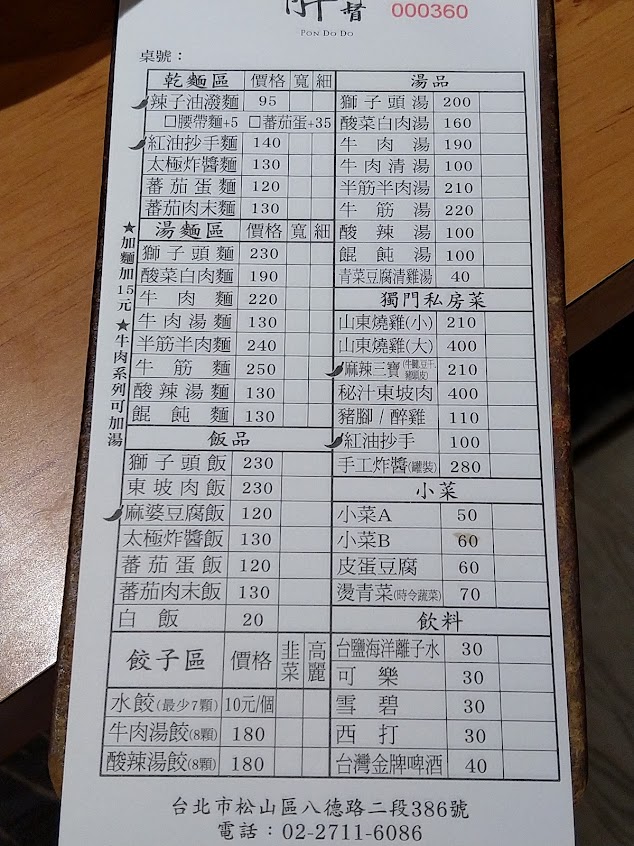 督
000360
PON DO DO
桌號：
乾麵區 價格 寬 細
辣子油潑麵 95
□腰帶麵+5 □蕃茄蛋+35
紅油抄手麵 140
太極炸醬麵 130
蕃茄蛋麵 120
蕃茄肉末麵 130
湯麵區 價格 寬 細
獅子頭麵 230
酸菜白肉麵 190
牛肉麵 220
牛肉湯麵 130
半筋半肉麵 240
牛筋麵 250
酸辣湯麵 130
餛飩麵 130
★加麵加15元★牛肉系列可加湯
飯品
獅子頭飯 230
東坡肉飯 230
麻婆豆腐飯 120
太極炸醬飯 130
蕃茄蛋飯 120
蕃茄肉末飯 130
白飯 20
餃子區 價格 韭菜 高麗
水餃(最少7顆) 10元/個
牛肉湯餃(8顆) 180
酸辣湯餃(8顆) 180
湯品
獅子頭湯 200
酸菜白肉湯 160
牛肉湯 190
牛肉清湯 100
半筋半肉湯 210
牛筋湯 220
酸辣湯 100
餛飩湯 100
青菜豆腐清雞湯 40
獨門私房菜
山東燒雞(小) 210
山東燒雞(大) 400
麻辣三寶(牛腱,豆干,豬頭皮) 210
秘汁東坡肉 400
豬腳/醉雞 110
紅油抄手 100
手工炸醬(罐裝) 280
小菜
小菜A 50
小菜B 60
皮蛋豆腐 60
燙青菜(時令蔬菜) 70
飲料
台鹽海洋離子水 30
可樂 30
雪碧 30
西打 30
台灣金牌啤酒 40
台北市松山區八德路二段386號
電話：02-2711-6086